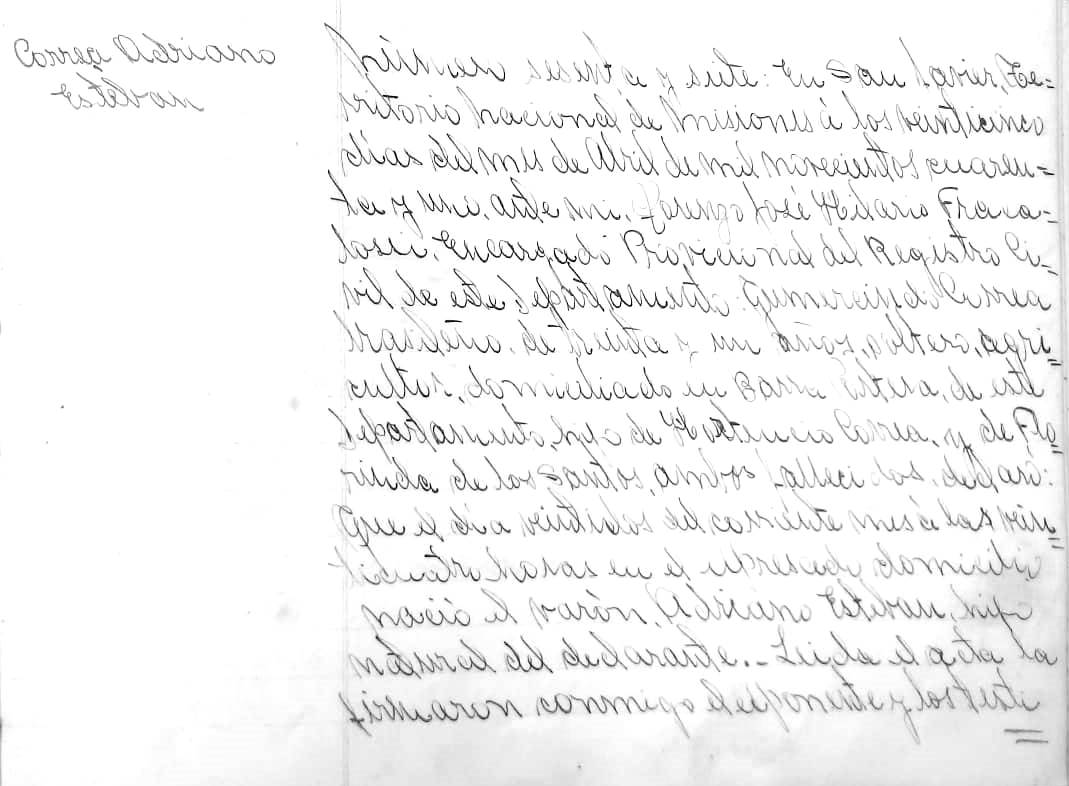 Correa Adriano
Esteban
Número sesenta y siete: En San Javier, Te=
rritorio Nacional de Misiones á los veinticinco
días del mes de Abril de mil novecientos cuaren=
ta y uno, ante mi, Lorenzo José Hilario
Encargado Provicional del Registro Ci=
vil de este Departamento: Gumercindo Correa
brasileño, de treinta y un años, soltero, agri=
cultor, domiciliado en Barra de este
Departamento, hijo de Hortencio Correa, y de Flo=
rinda de los Santos, ambos fallecidos, declaró:
Que el día veintidos del corriente mes á las vein=
ticuatro horas en el espresado domicilio
nació el varón, Adriano Esteban, hijo
natural del declarante.- Leida el acta la
firmaron conmigo el esponente y los testi=